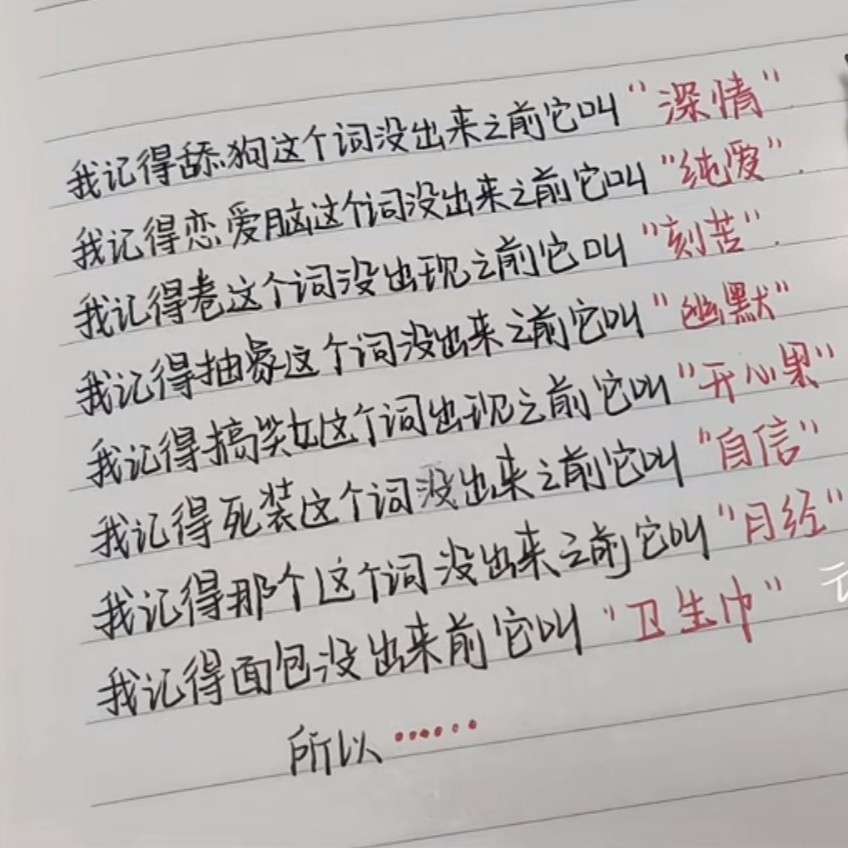 我记得舔狗这个词没出来之前它叫“深情”.
我记得恋爱脑这个词没出来之前它叫“纯爱”.
我记得卷这个词没出现之前它叫“刻苦”.
我记得抽象这个词没出来之前它叫“幽默”
我记得搞笑女这个词出现之前它叫“开心果”
我记得死装这个词没出来之前它叫“自信”
我记得那个这个词没出来之前它叫“月经”
我记得面包没出来前它叫“卫生巾”
所以……